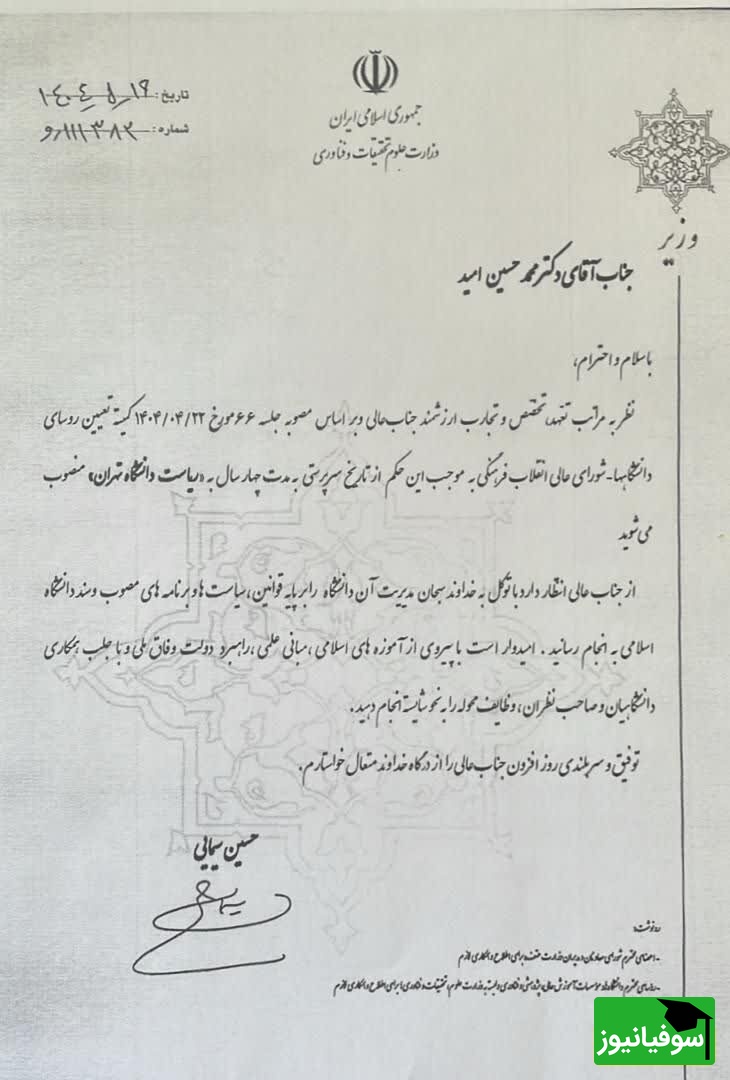 جمهوری اسلامی ایران
وزارت علوم تحقیقات و فناوری
تاریخ:
شماره: ۱۱۱۳۸۲/و
وزیر
جناب آقای دکتر محمد حسین امید
با سلام و احترام،
نظر به مراتب تعهد، تخصص و تجارب ارزشمند جناب عالی و بر اساس مصوبه جلسه ۶۶ مورخ ۱۴۰۴/۰۴/۲۲ کمیته تعیین روسای
دانشگاهها-شورای عالی انقلاب فرهنگی به موجب این حکم از تاریخ سرپرستی به مدت چهار سال به «ریاست دانشگاه تهران» منصوب
می شوید
از جناب عالی انتظار دارد با توکل به خداوند سبحان مدیریت آن دانشگاه را بر پایه قوانین، سیاست ها و برنامه های مصوب و سند دانشگاه
اسلامی به انجام رسانید. امیدوار است با پیروی از آموزه های اسلامی، مبانی علمی، راهبرد دولت وفاق ملی و با جلب همکاری
دانشگاهیان و صاحب نظران، وظایف محوله را به نحو شایسته انجام دهید.
توفیق و سربلندی روز افزون جناب عالی را از درگاه خداوند متعال خواستارم.
حسین سیمایی
رونوشت:
-اعضای محترم شورای معاونان و مدیران وزارت متبوع برای اطلاع و همکاری لازم
-روسای محترم دانشگاه ها و موسسات آموزش عالی، پژوهشی و فناوری وابسته به وزارت علوم، تحقیقات و فناوری برای اطلاع و همکاری لازم
سوفیانیوز